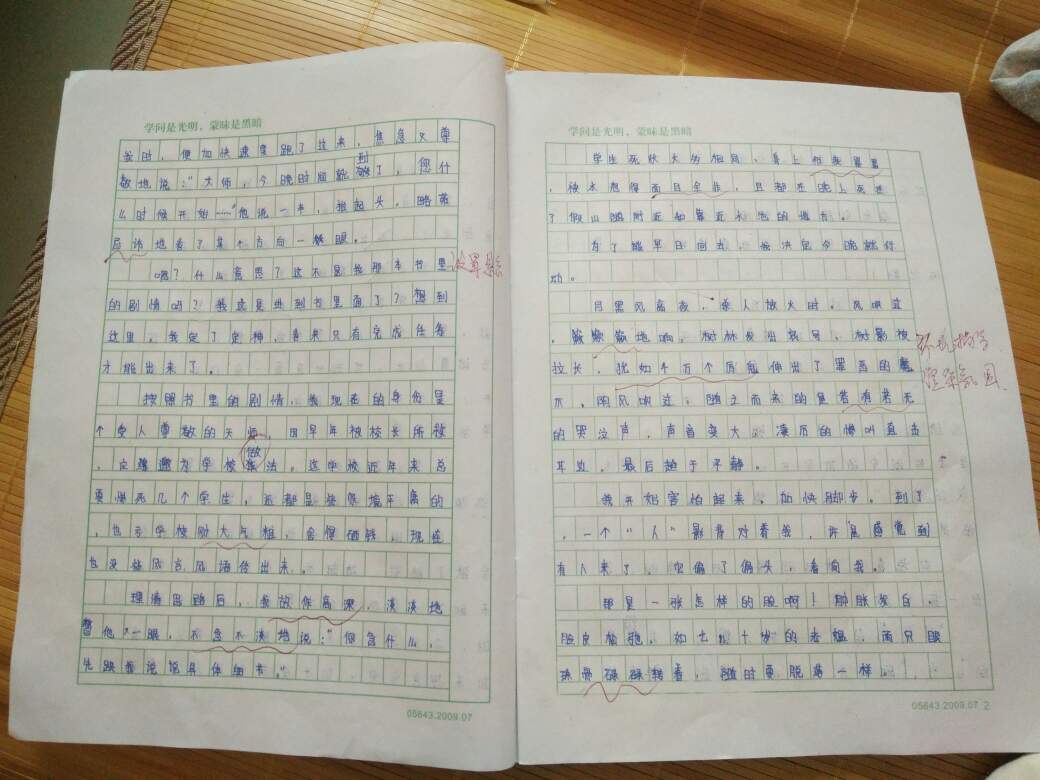 学问是光明，蒙昧是黑暗
我时，便加快速度跑了过来，焦急又尊
敬地说：“大师，今晚时间就到够了，您什
么时候开始……”他说一半，抬起头，略带
忌讳地看了某个方向一眼。
嗯？什么意思？这不是我那本书里 设置悬念
的剧情吗？我这是进到书里面了？想到
这里，我定了定神，看来只有完成任务
才能出来了。
按照书里的剧情，我现在的身份是
个受人尊敬的天师，因早年被校长所救
，应邀为学校做法，这学校近年来总
要惨死几个学生，还都是些家境不富的
，也亏学校财大气粗，舍得砸钱，现在
也没敢风言风语传出来。
理清思路后，我故作高深，淡淡地
瞥他一眼，不急不淡地说：“你急什么，
先跟我说说具体细节。”
05643.2009.07
学问是光明，蒙昧是黑暗
学生死状大为相同，身上
，被水泡得面目全非，且都在晚上死
了假山 附近和靠近水池的地方。
为了能早日回去，我决定今晚就行
动。
月黑风高夜，杀人放火时。风吹过
，簌簌地响，树林发出 号，树影被
拉长，犹如千万个厉鬼伸出了罪恶的魔 环境描写
爪，阴风吹过，随之而来的是若有若无 渲染氛围
的哭泣声，声音变大，凄厉的惨叫直击
耳处，最后趋于平静。
我开始害怕起来，加快脚步。到了
，一个“人”影背对着我，许是感觉到
有人来了，它偏了偏头，看向我。
那是一张怎样的脸啊！肿胀发白，
脸皮 ，如七八十岁的老妪，两只眼
珠骨碌碌转着，随时要脱落一样。
05643.2009.07 2